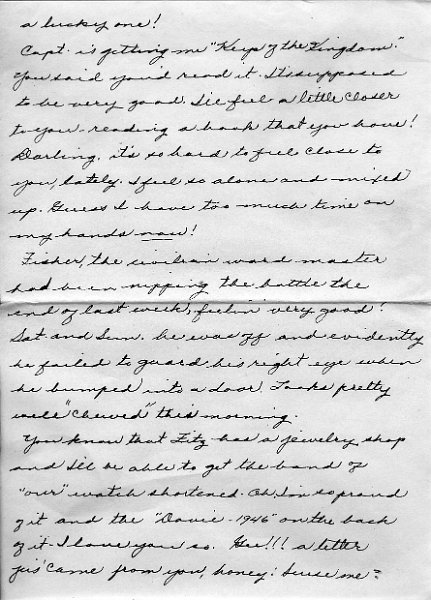 a lucky one!
Capt. is getting me "Keys of the Kingdom."
You said you'd read it. It's supposed
to be very good. I'll feel a little closer
to you - reading a book that you have!
Darling, it's so hard to feel close to
you, lately. I feel so alone and mixed
up. Guess I have too much time on
my hands now!
Fisher, the civilian ward master
had been nipping the bottle the
end of last week, feelin' very good!
Sat. and Sun. he was off and evidently
he failed to guard his right eye when
he bumped into a door. Looks pretty
well "chewed" this morning.
You know that Fitz has a jewelry shop
and I'll be able to get the band of
"our" watch shortened. Oh, I'm so proud
of it and the "Davie - 1946" on the back
of it - I love you so. Gee!!! a letter
jus' came from you, honey! 'scuse me =